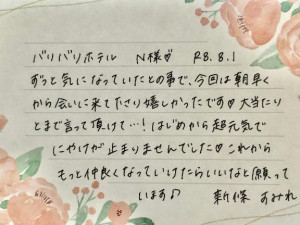 バリバリホテル N様♡ R8.8.1
ずっと気になっていたとの事で、今回は朝早く
から会いに来て下さり嬉しかったです♡大当たり
とまで言って頂けて…!はじめから超元気で
にやけが止まりませんでした♡これから
もっと仲良くなっていけたらいいなと願って
います♪ 新保 すみれ